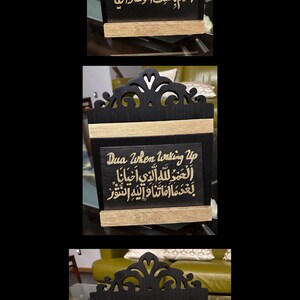 Dua When Waking Up
الْحَمْدُ لِلَّهِ الَّذِي أَحْيَانَا
بَعْدَمَا أَمَاتَنَا وَإِلَيْهِ النُّشُوْرُ